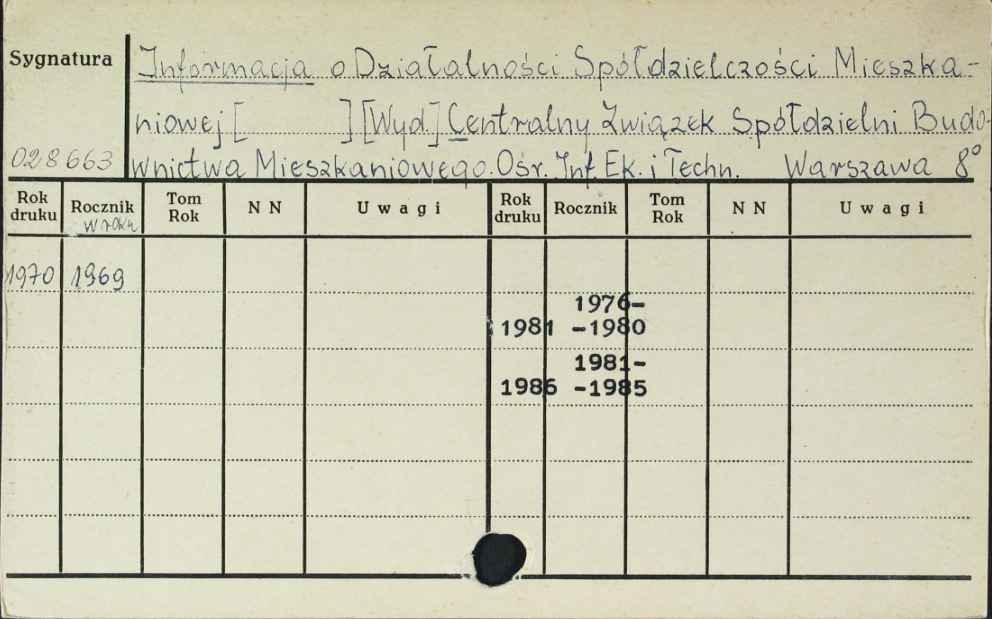 Sygnatura
Informacja o Działalności Spółdzielczości Mieszka-
niowej [ ] [Wyd.] Centralny Związek Spółdzielni Budo-
028663 wnictwa Mieszkaniowego. Ośr. Inf. Ek. i Techn. Warszawa 8°
Rok druku Rocznik w roku Tom Rok N N Uwagi Rok druku Rocznik Tom Rok N N Uwagi
1970 1969
1976-
1981 -1980
1981-
1986 -1985